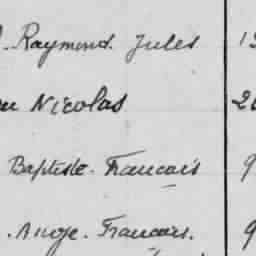 Raymond. Jules 
Nicolas
Baptiste. Francois 9
Ange. Francois. 9